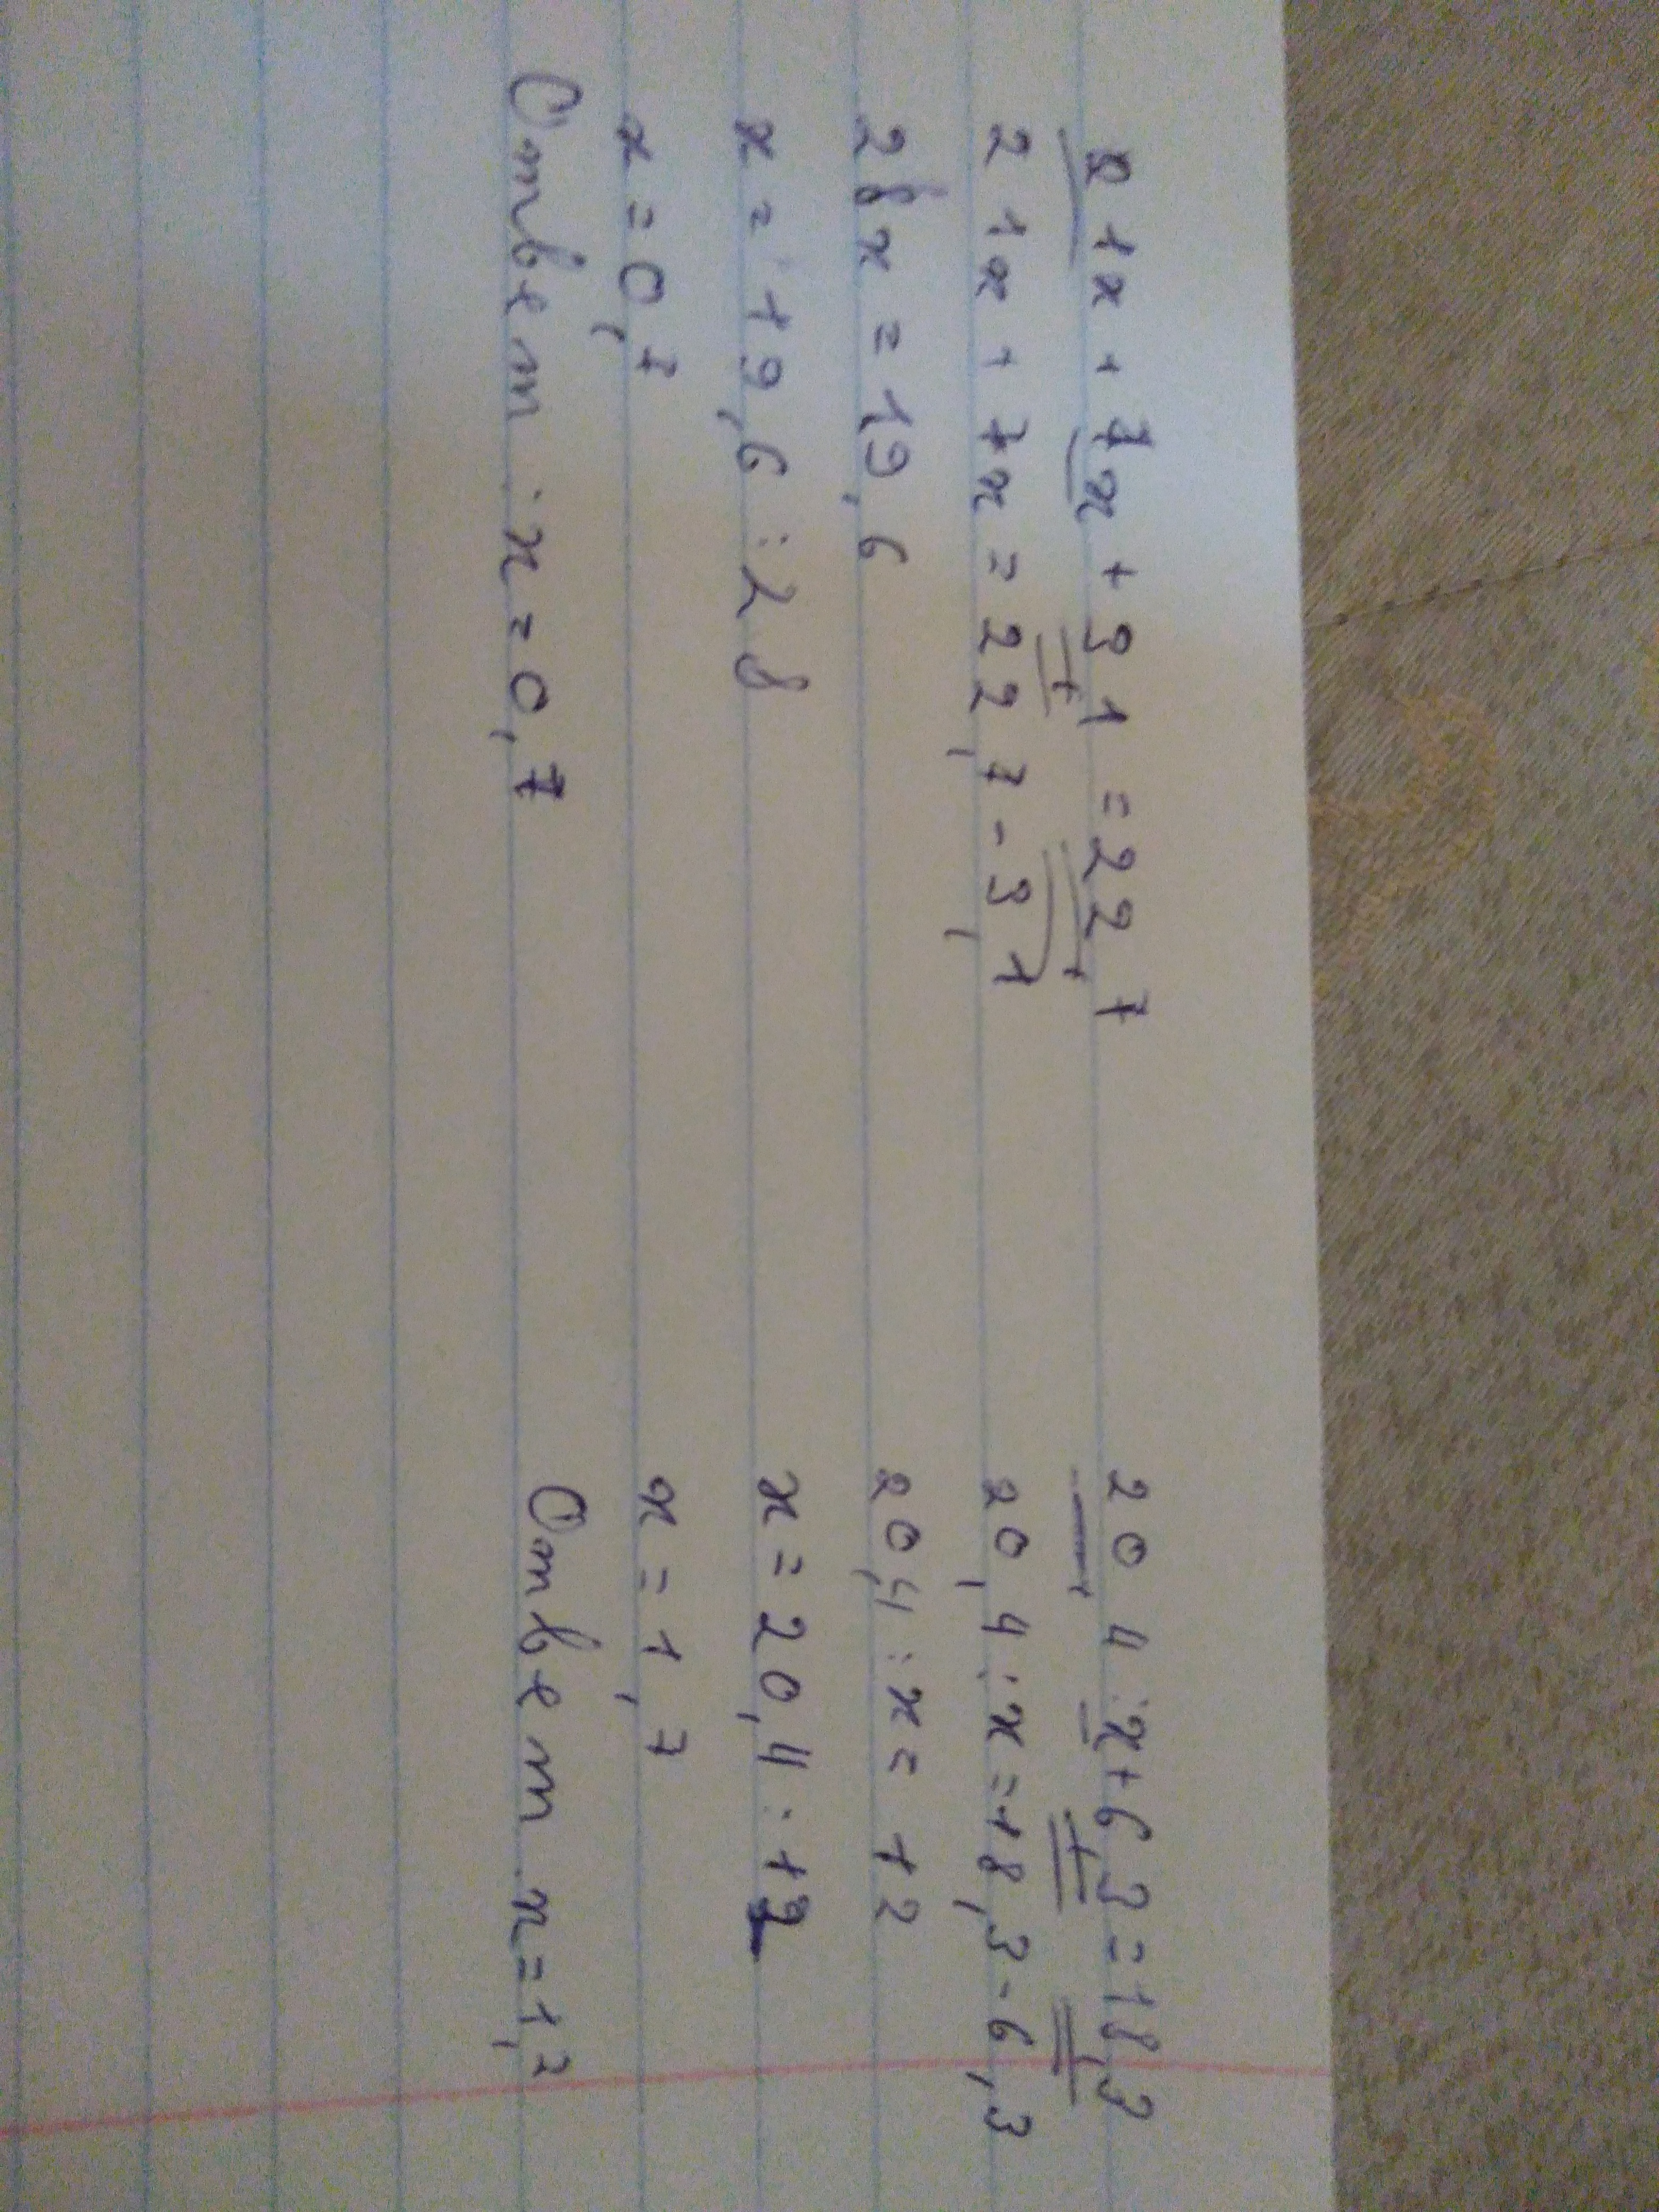 21x + 7x + 3,1 = 22,7
21x + 7x = 22,7 - 3,1
28x = 19,6
x = 19,6 : 28
x = 0,7
Ответ: x = 0,7
20,4 : x + 6,3 = 18,3
20,4 : x = 18,3 - 6,3
20,4 : x = 12
x = 20,4 : 12
x = 1,7
Ответ x = 1,7